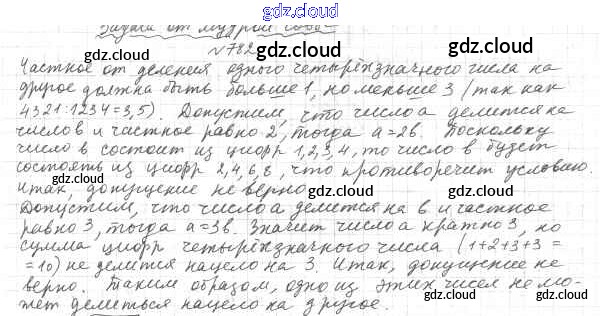 gdz.cloud
Задача от мудрой совы
gdz.cloud gdz.cloud
№782
Частное от деления одного четырёхзначного числа на
другое должна быть больше 1, но меньше 3 (так как
4321:1234=3,5). Допустим, что число a делится на
gdz.cloud gdz.cloud
число в и частное равно 2, тогда a=2в. Поскольку
число в состоит из цифр 1,2,3,4, то число в будет
состоять из цифр 2,4,6,8, что противоречит условию.
gdz.cloud gdz.cloud
Итак, допущение не верно.
Допустим, что число a делится на в и частное
gdz.cloud gdz.cloud
равно 3, тогда a=3в. Значит число a кратно 3, но
сумма цифр четырёхзначного числа (1+2+3+3=
=10) не делится нацело на 3. Итак, допущение не
gdz.cloud gdz.cloud
верно. Таким образом, одно из этих чисел не мо-
жет делиться нацело на другое.
gdz.cloud gdz.cloud